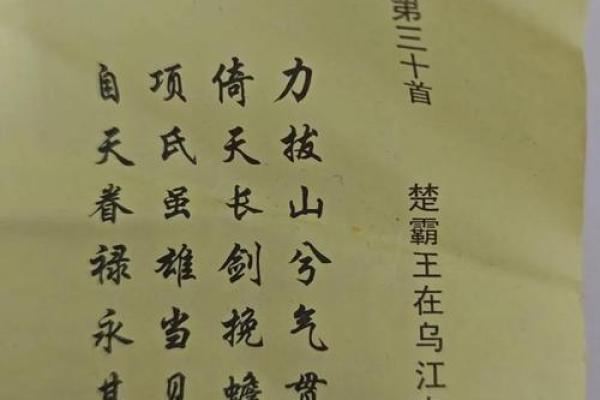 第三十首 楚霸王在乌江
力拔山兮气贯
倚天长剑挽蟾
项氏虽雄当见
自天眷禄永